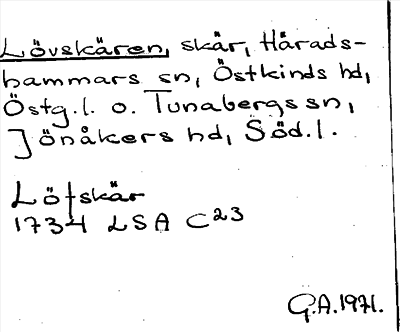 Lövskären, skär, Härads-
hammars sn, Östkinds hd,
Östg.l. o. Tunabergs sn,
Jönåkers hd, Söd.l.
Löfskär
1734 LSA C23
G.A.1971.